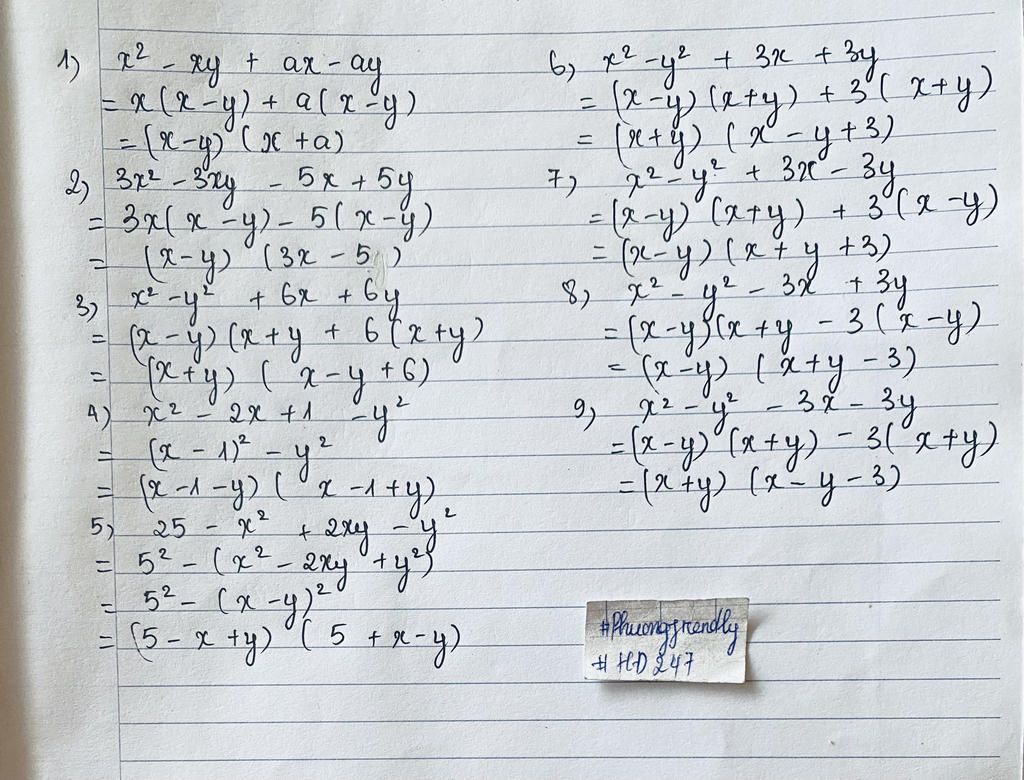 1) x² - xy + ax - ay
= x(x-y) + a(x-y)
= (x-y) (x+a)
2) 3x² - 3xy - 5x + 5y
= 3x(x-y) - 5(x-y)
= (x-y) (3x-5)
3) x² - y² + 6x + 6y
= (x-y)(x+y + 6(x+y)
= (x+y) (x-y+6)
4) x² - 2x + 1 - y²
= (x-1)² - y²
= (x-1-y) (x-1+y)
5) 25 - x² + 2xy - y²
= 5² - (x² - 2xy + y²)
= 5² - (x-y)²
= (5-x+y) (5+x-y)
6) x² - y² + 3x + 3y
= (x-y)(x+y) + 3(x+y)
= (x+y) (x-y+3)
7) x² - y² + 3x - 3y
= (x-y) (x+y) + 3(x-y)
= (x-y) (x+y+3)
8) x² - y² - 3x + 3y
= (x-y)(x+y - 3(x-y)
= (x-y) (x+y-3)
9) x² - y² - 3x - 3y
= (x-y) (x+y) - 3(x+y)
= (x+y) (x-y-3)
#Phuongfriendly
#HD247